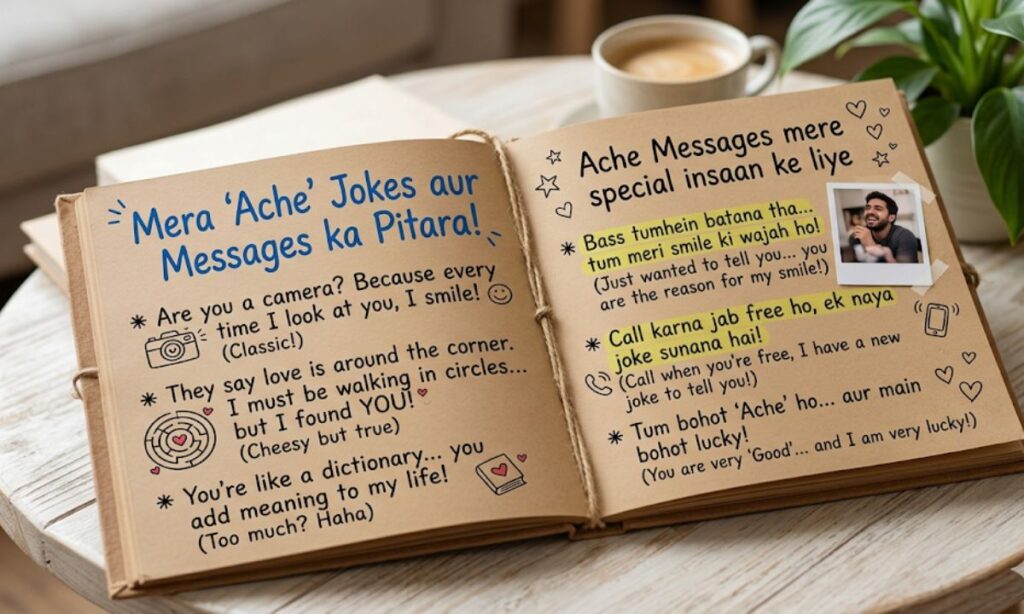 Mera 'Ache' Jokes aur
Messages ka Pitara!
* Are you a camera? Because every
time I look at you, I smile!
(Classic!)
* They say love is around the corner.
I must be walking in circles...
but I found YOU!
(Cheesy but true)
* You're like a dictionary... you
add meaning to my life!
(Too much? Haha)
Ache Messages mere
special insaan ke liye
* Bass tumhein batana tha...
tum meri smile ki wajah ho!
(Just wanted to tell you... you
are the reason for my smile!)
* Call karna jab free ho, ek naya
joke sunana hai!
(Call when you're free, I have a new
joke to tell you!)
* Tum bohot 'Ache' ho... aur main
bohot lucky!
(You are very 'Good'... and I am very lucky!)